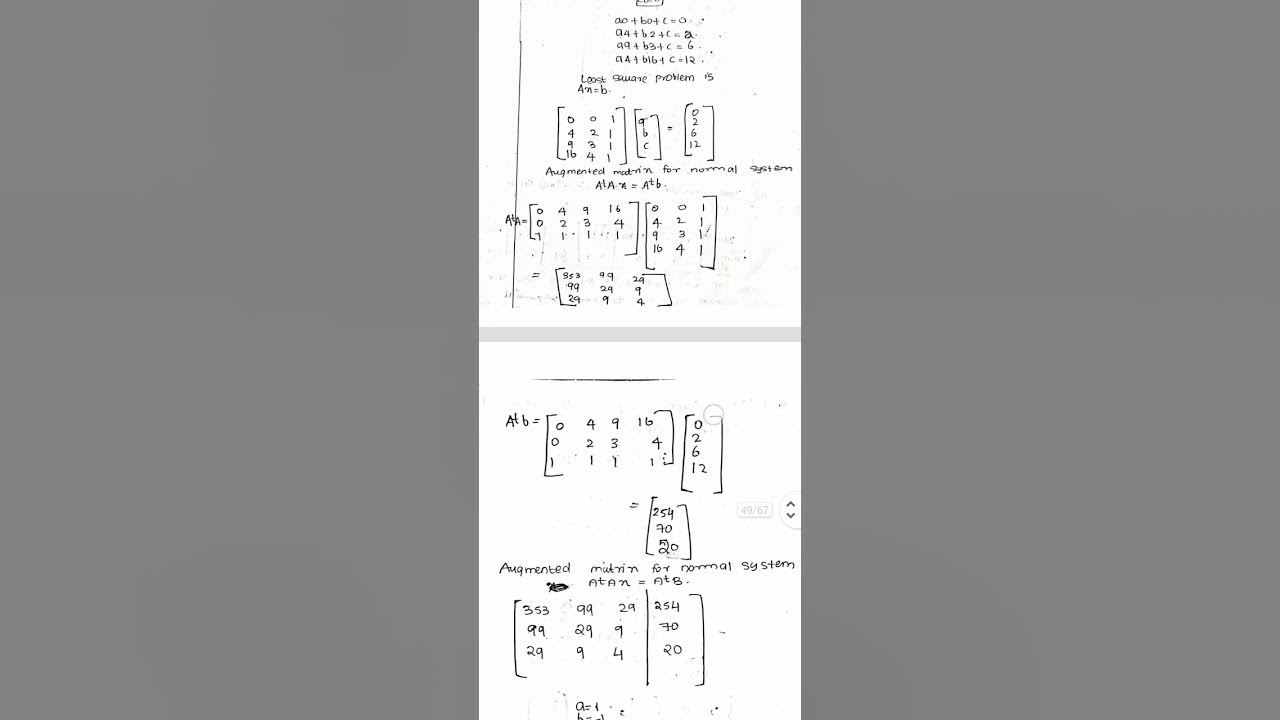 a0+b0+c=0
a4+b2+c=2
a9+b3+c=6
a4+b16+c=12
Least square problem is
An=b.
[0 0 1] [a] = [0]
[4 2 1] [b] [2]
[9 3 1] [c] [6]
[16 4 1] [12]
Augmented matrix for normal system
AtAn = Atb.
AtA = [0 4 9 16] [0 0 1]
[0 2 3 4] [4 2 1]
[1 1 1 1] [9 3 1]
[16 4 1]
= [353 99 29]
[99 29 9]
[29 9 4]
Atb = [0 4 9 16] [0]
[0 2 3 4] [2]
[1 1 1 1] [6]
[12]
= [254]
[70]
[20]
49/67
Augmented matrix for normal system
AtAn = AtB.
[353 99 29 | 254]
[99 29 9 | 70]
[29 9 4 | 20]
a=1
b=-1